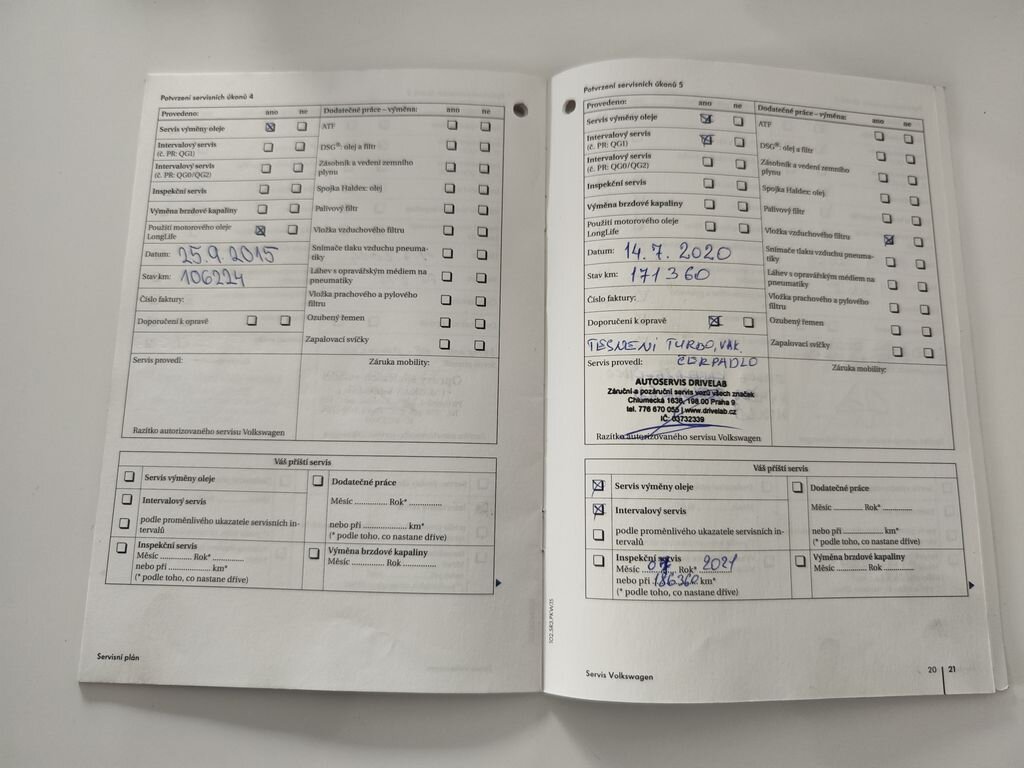 Potvrzení servisních úkonů 4
Provedeno: ano ne
Servis výměny oleje
Intervalový servis
(č. PR: QG1)
Intervalový servis
(č. PR: QG0/QG2)
Inspekční servis
Výměna brzdové kapaliny
Použití motorového oleje
LongLife
Datum: 25.9.2015
Stav km: 106224
Číslo faktury:
Doporučení k opravě
Servis provedl:
Razítko autorizovaného servisu Volkswagen
Dodatečné práce – výměna: ano ne
ATF
DSG®: olej a filtr
Zásobník a vedení zemního
plynu
Spojka Haldex: olej
Palivový filtr
Vložka vzduchového filtru
Snímače tlaku vzduchu pneuma-
tiky
Láhev s opravářským médiem na
pneumatiky
Vložka prachového a pylového
filtru
Ozubený řemen
Zapalovací svíčky
Záruka mobility:
Váš příští servis
Servis výměny oleje
Intervalový servis
podle proměnlivého ukazatele servisních in-
tervalů
Inspekční servis
Měsíc .............. Rok* ..............
nebo při .............. km*
(* podle toho, co nastane dříve)
Dodatečné práce
Měsíc .............. Rok* ..............
nebo při .............. km*
(* podle toho, co nastane dříve)
Výměna brzdové kapaliny
Měsíc .............. Rok ..............
Servisní plán
Potvrzení servisních úkonů 5
Provedeno: ano ne
Servis výměny oleje
Intervalový servis
(č. PR: QG1)
Intervalový servis
(č. PR: QG0/QG2)
Inspekční servis
Výměna brzdové kapaliny
Použití motorového oleje
LongLife
Datum: 14.7.2020
Stav km: 171360
Číslo faktury:
Doporučení k opravě
TĚSNENÍ TURBO, VAK.
Servis provedl: ČERPADLO
AUTOSERVIS DRIVELAB
Záruční a pozáruční servis vozů všech značek
Chlumecká 1636, 198 00 Praha 9
tel. 776 670 055 | www.drivelab.cz
IČ: 03732339
Razítko autorizovaného servisu Volkswagen
Dodatečné práce – výměna: ano ne
ATF
DSG®: olej a filtr
Zásobník a vedení zemního
plynu
Spojka Haldex: olej
Palivový filtr
Vložka vzduchového filtru
Snímače tlaku vzduchu pneuma-
tiky
Láhev s opravářským médiem na
pneumatiky
Vložka prachového a pylového
filtru
Ozubený řemen
Zapalovací svíčky
Záruka mobility:
Váš příští servis
Servis výměny oleje
Intervalový servis
podle proměnlivého ukazatele servisních in-
tervalů
Inspekční servis
Měsíc 07 Rok* 2021
nebo při 186360 km*
(* podle toho, co nastane dříve)
Dodatečné práce
Měsíc .............. Rok* ..............
nebo při .............. km*
(* podle toho, co nastane dříve)
Výměna brzdové kapaliny
Měsíc .............. Rok ..............
Servis Volkswagen
20 21